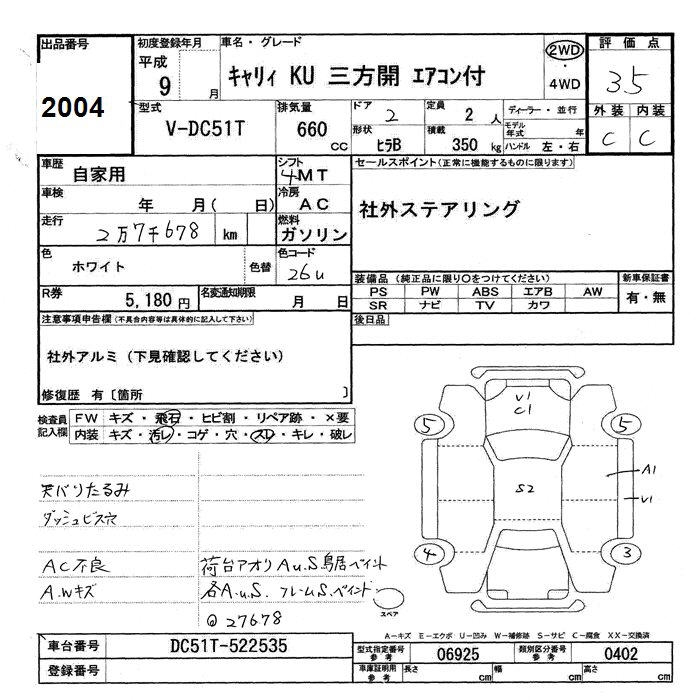 出品番号
2004
初度登録年月
平成
9 月
車名・グレード
ｷｬﾘｨ KU 三方開 ｴｱｺﾝ付
2WD
・
4WD
評価点
3.5
型式
V-DC51T
排気量
660 CC
ドア
2
定員
2 人
ディーラー・並行
モデル年式 年
外装
内装
C
C
形状
ﾋﾗB
積載
350 kg
ハンドル 左・右
車歴
自家用
シフト
4MT
セールスポイント(正常に機能するものに限ります)
社外ステアリング
車検
年 月( 日)
冷房
AC
走行
2万7千678 km
燃料
ガソリン
色
ホワイト
色替
色コード
26U
R券
5,180 円
名変通知期限
月 日
装備品 (純正品に限り〇をつけてください)
新車保証書
PS PW ABS エアB AW
SR ナビ TV カワ
有・無
後日品
注意事項申告欄(不具合内容等は具体的に記入して下さい)
社外アルミ (下見確認してください)
修復歴 有〔箇所 〕
検査員
記入欄
FW キズ・飛石・ヒビ割・リペア跡・×要
内装 キズ・汚レ・コゲ・穴・スレ・キレ・破レ
天バリたるみ
ダッシュビス穴
AC不良
A.Wキズ
荷台アオリAu.S鳥居ペイント
各A.u.S. フレームS.ペイント
27678
V1
C1
5
5
S2
A1
V1
4
3
スペア
A−キズ E−エクボ U−凹み W−補修跡 S−サビ C−腐食 XX−交換済
車台番号
DC51T-522535
登録番号
型式指定番号
参考
06925
類別区分番号
参考
0402
車庫証明用
参考
長さ cm
幅 cm
高さ cm